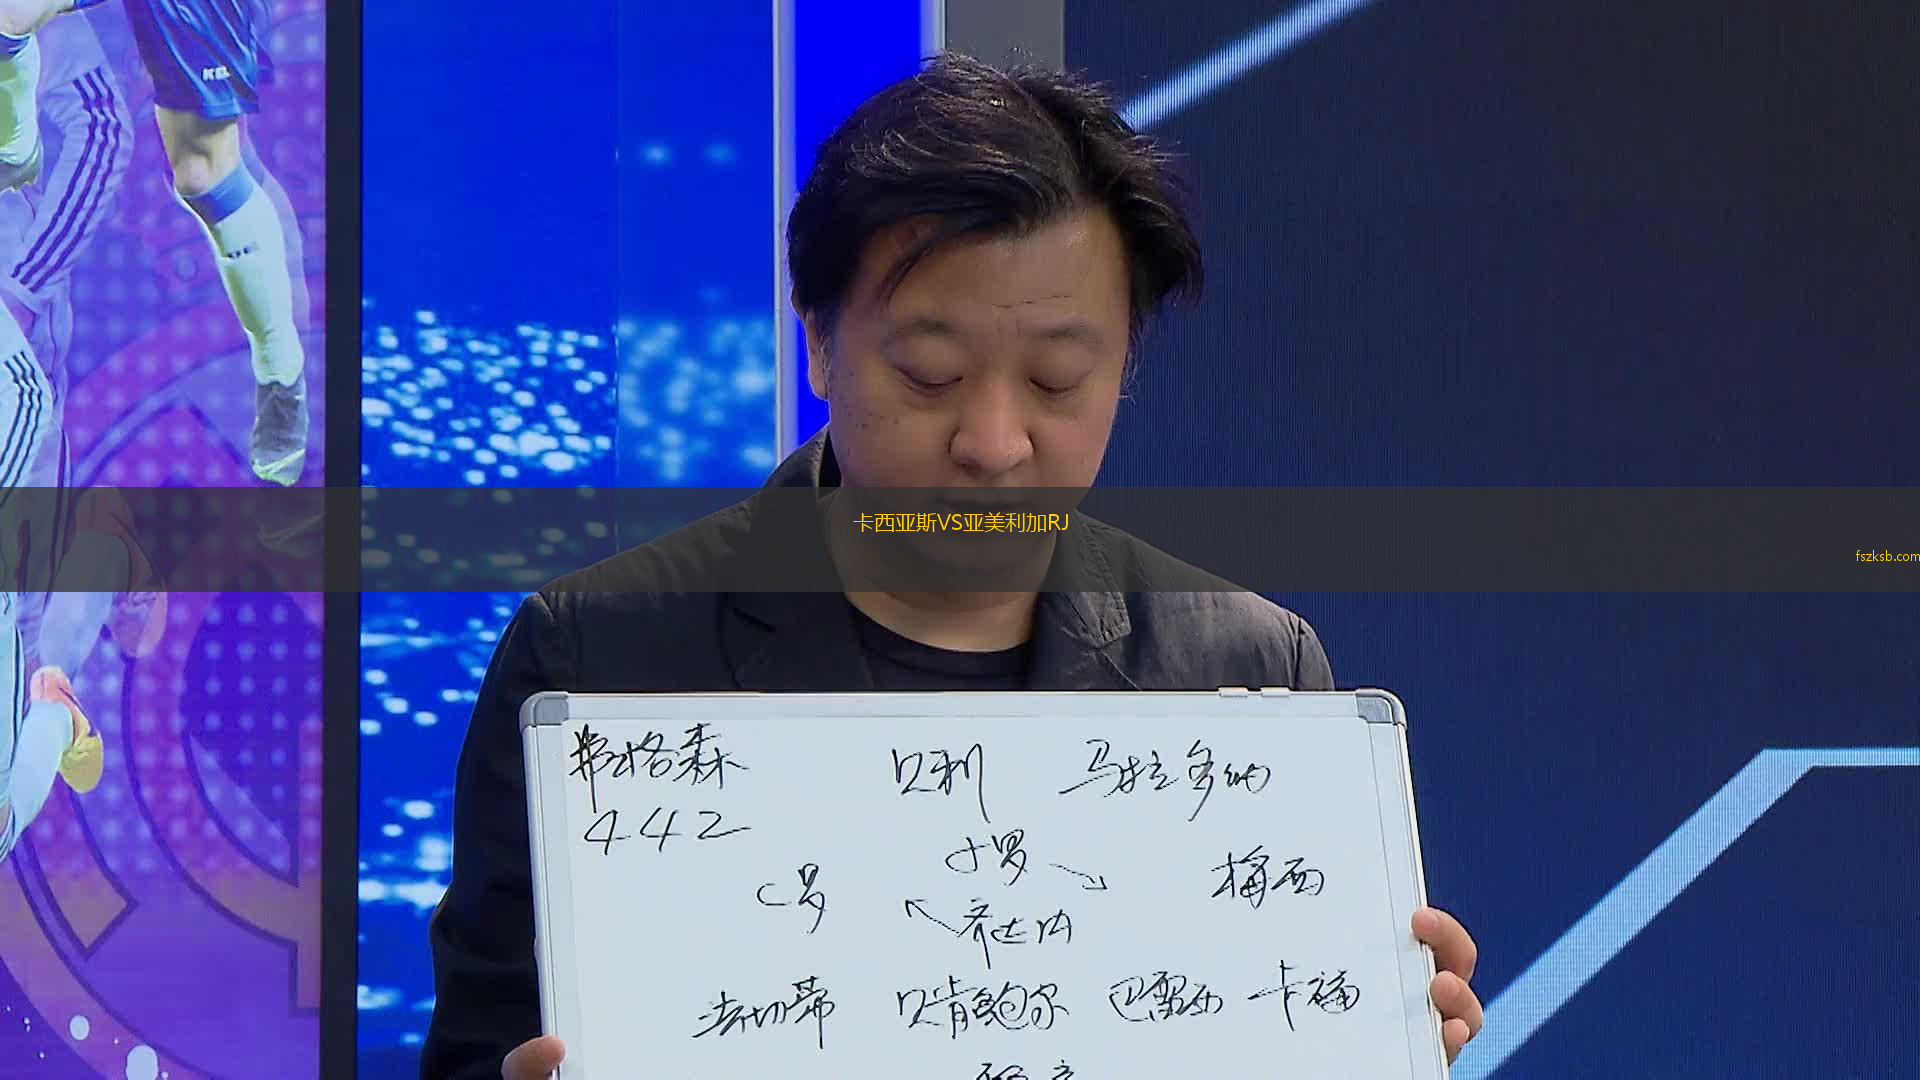 卡西亚斯VS亚美利加RJ
fszksb.com
弗格森 贝利 马拉多纳
442
小罗
C罗 梅西
齐达内
法切蒂 贝肯鲍尔 巴雷西 卡福